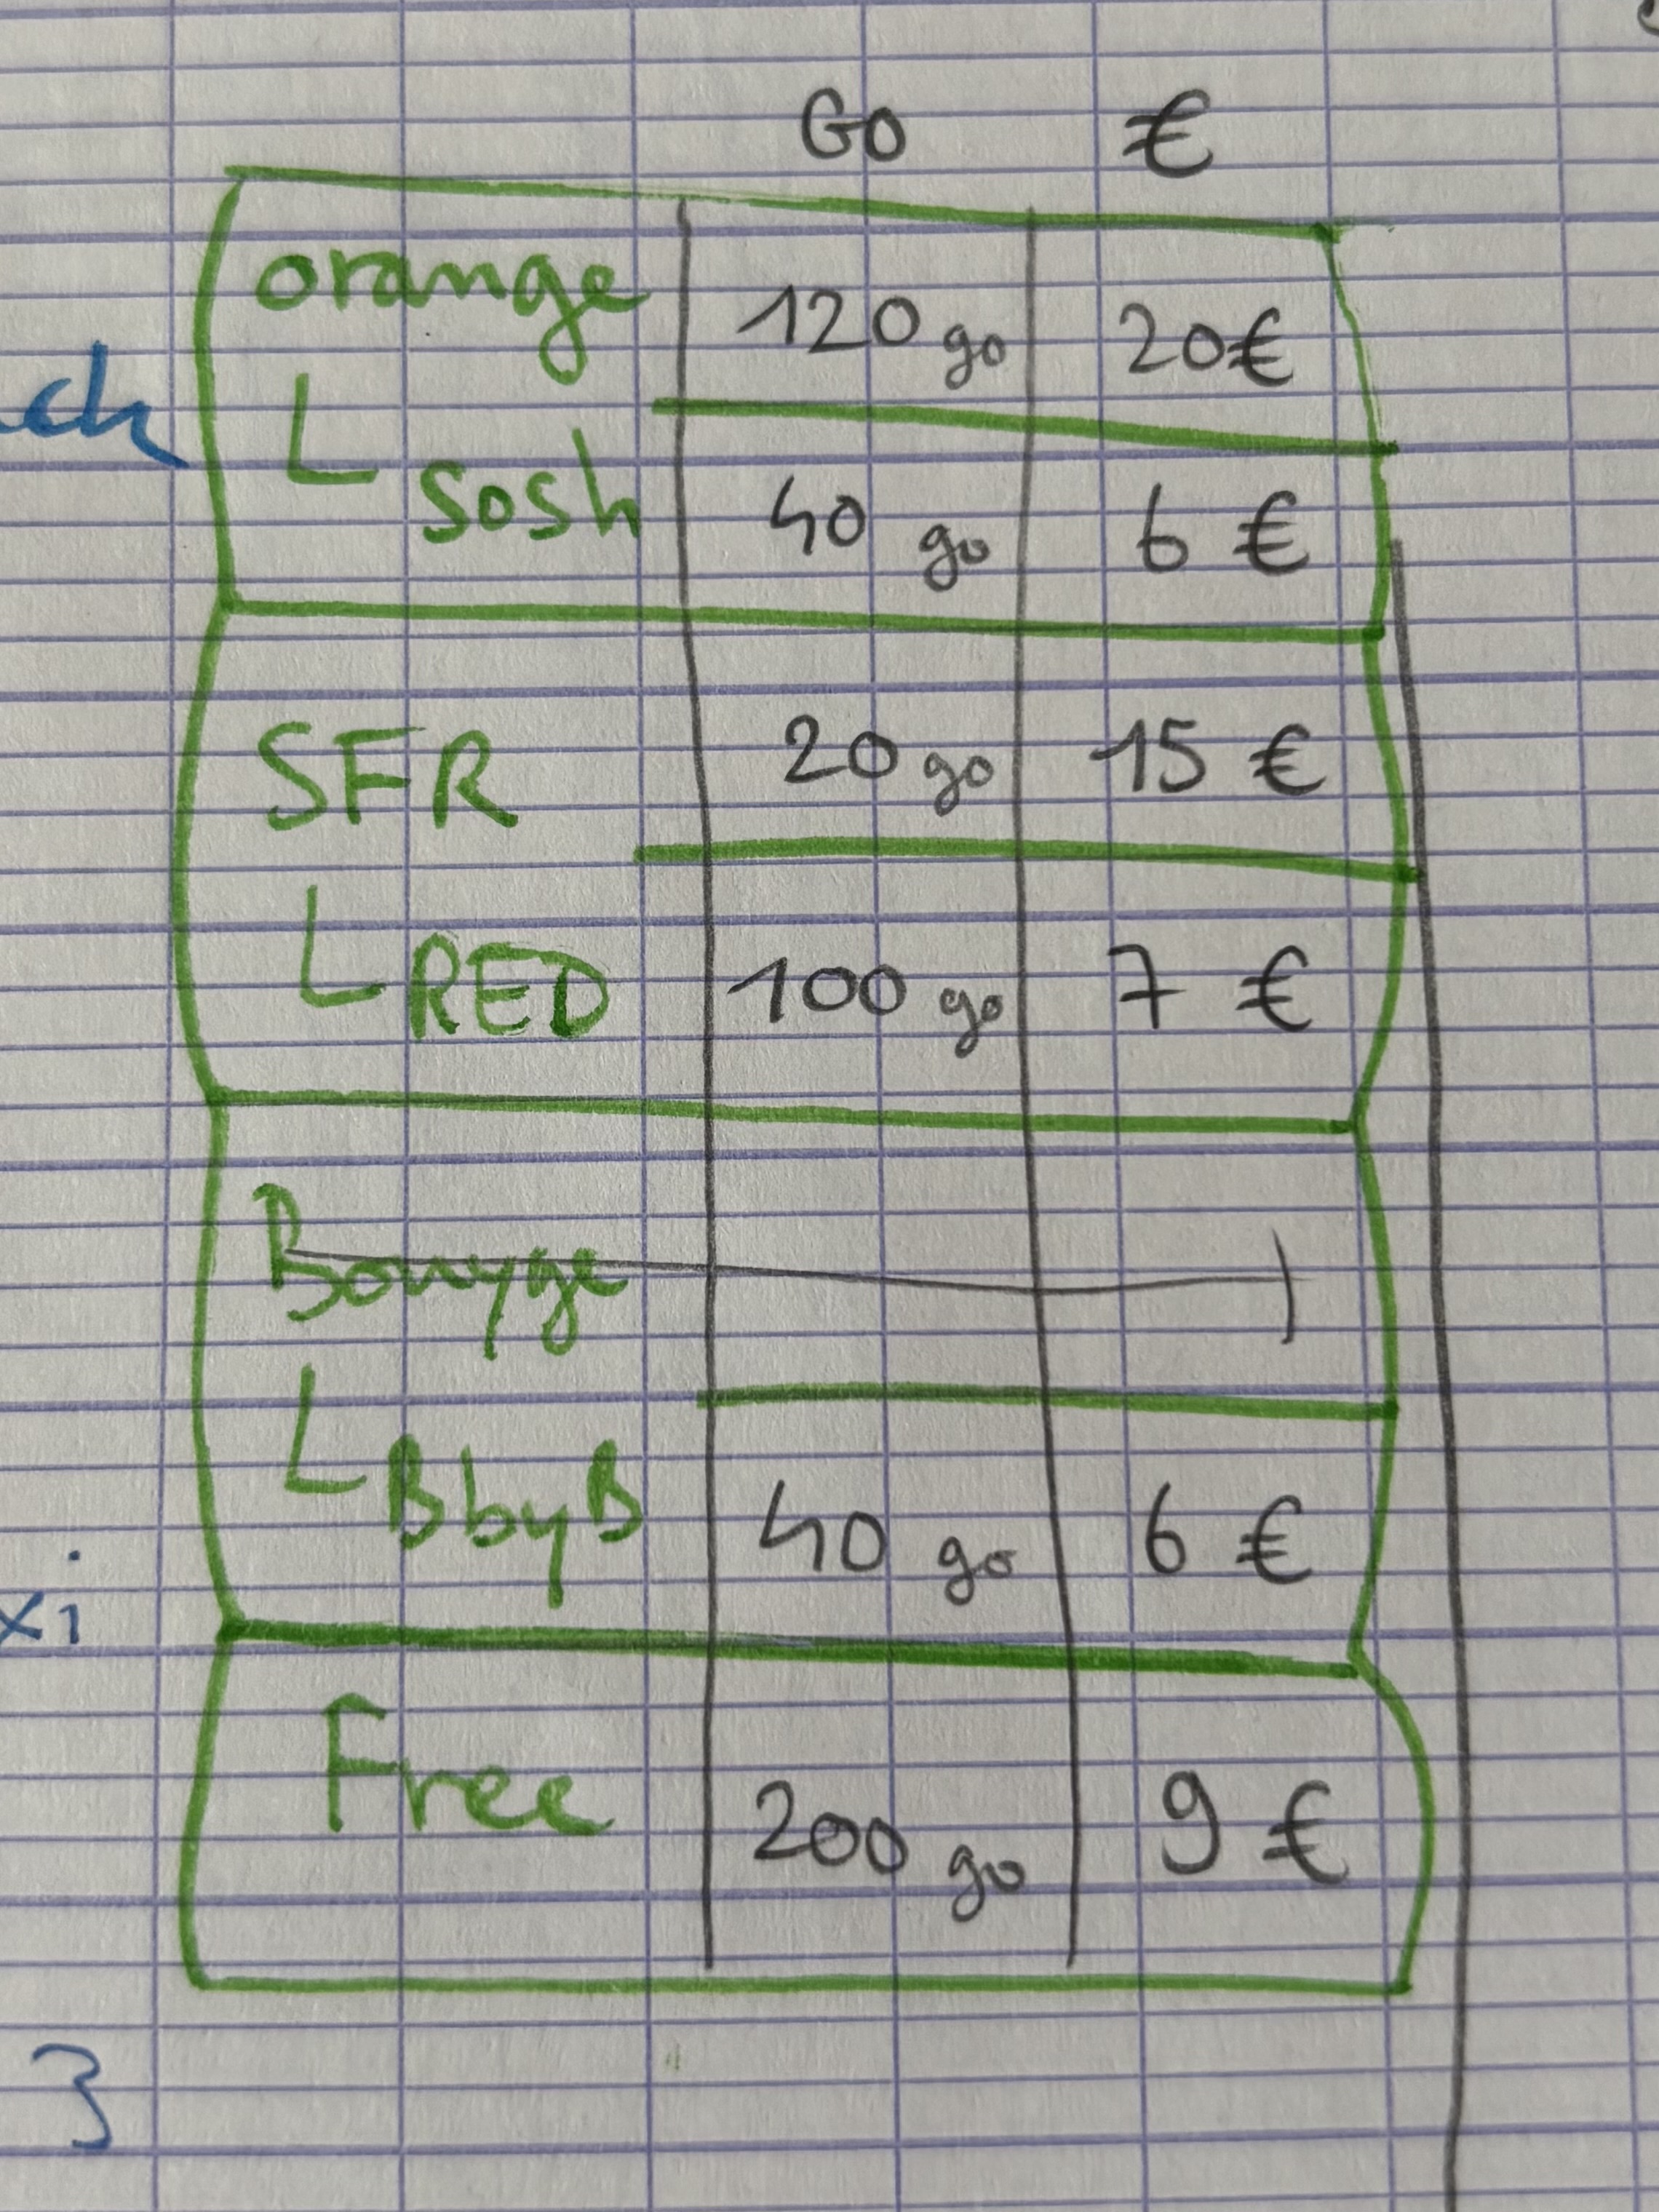 GO €
orange 120 go 20€
L sosh 40 go 6 €
ch
SFR 20 go 15 €
L RED 100 go 7 €
Bouyge
L BbyB 40 go 6 €
xi
Free 200 go 9 €
3